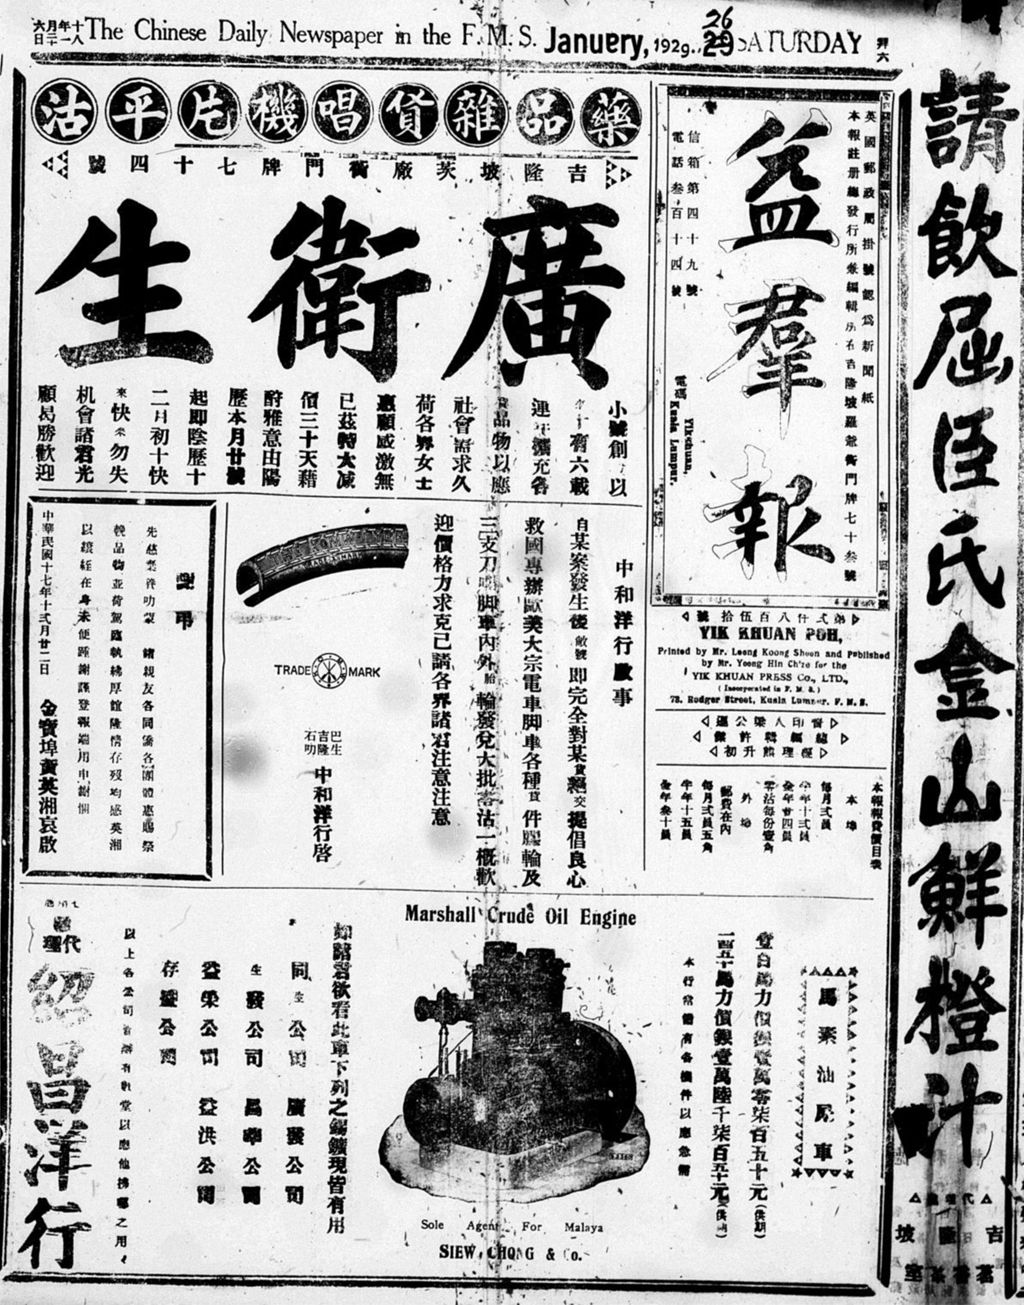 The Chinese Daily Newspaper in the F. M. S. January, 1929. 26 SATURDAY
拜六
請飲屈臣氏金山鮮橙汁
益羣報
英國郵政局掛號認爲新聞紙
本報註册總發行所兼編輯所在吉隆坡羅爺街門牌七十叁號
信箱第四十九號
電話叁百十四號
電碼
Yikchuan,
Kuala Lumpur.
號拾伍百八仟弍第
YIK KHUAN POH,
Printed by Mr. Leong Koong Shoon and Published
by Mr. Yoong Hin Chize for the
YIK KHUAN PRESS Co., LTD.,
(Incorporated in F. M. S.)
73, Rodger Street, Kuala Lumpur, F. M. S.
運公梁人印督
初升熊理經
本報報費價目表
本埠
每月弍員
半年十弍員
全年廿四員
零沽每份壹角
外埠
郵費在內
每月弍員五角
半年十五員
全年叁十員
藥品雜貨唱機片平沽
吉隆坡茨廠街門牌七十四號
廣衛生
小號創
以
有六載
連
攜充各
品物以應
社會需求久
荷各界女士
惠顧感激無
已茲特大减
價三十天藉
酧雅意由陽
歷本月廿號
起即陰歷十
二月初十快
來快來勿失
机會諸君光
顧曷勝歡迎
中和洋行啟事
自某案發生後敝號即完全對某貨絕交提倡良心
救國專辦歐美大宗電車脚車各種貨件膠輪及
三支刀嘜脚車內外胎輪發兌大批零沽一概歡
迎價格力求克己請各界諸君注意注意
TRADE MARK
巴生
吉隆
石叻
中和洋行啓
謝弔
先慈棄養叻蒙 諸親友各同僑各團體惠賜祭
輓品物並荷駕臨執紼厚誼隆情存歿均感英湘
以縗絰在身未便踵謝謹登報端用申謝悃
中華民國十七年十弍月廿二日
金寶埠黃英湘哀啟
Marshall Crude Oil Engine
馬素油尿車
壹百馬力價銀壹萬零柒百五十元
一百五十馬力價銀壹萬陸千柒百五十元
本行常備有各機件以應急需
Sole Agent For Malaya
SIEW CHONG & Co.
諸君欲看此車下列之錫鑛現皆有用
同生公司 廣發公司
生發公司 昌華公司
益榮公司 益洪公司
存益公司
代理
紹昌洋行
代理
吉隆坡